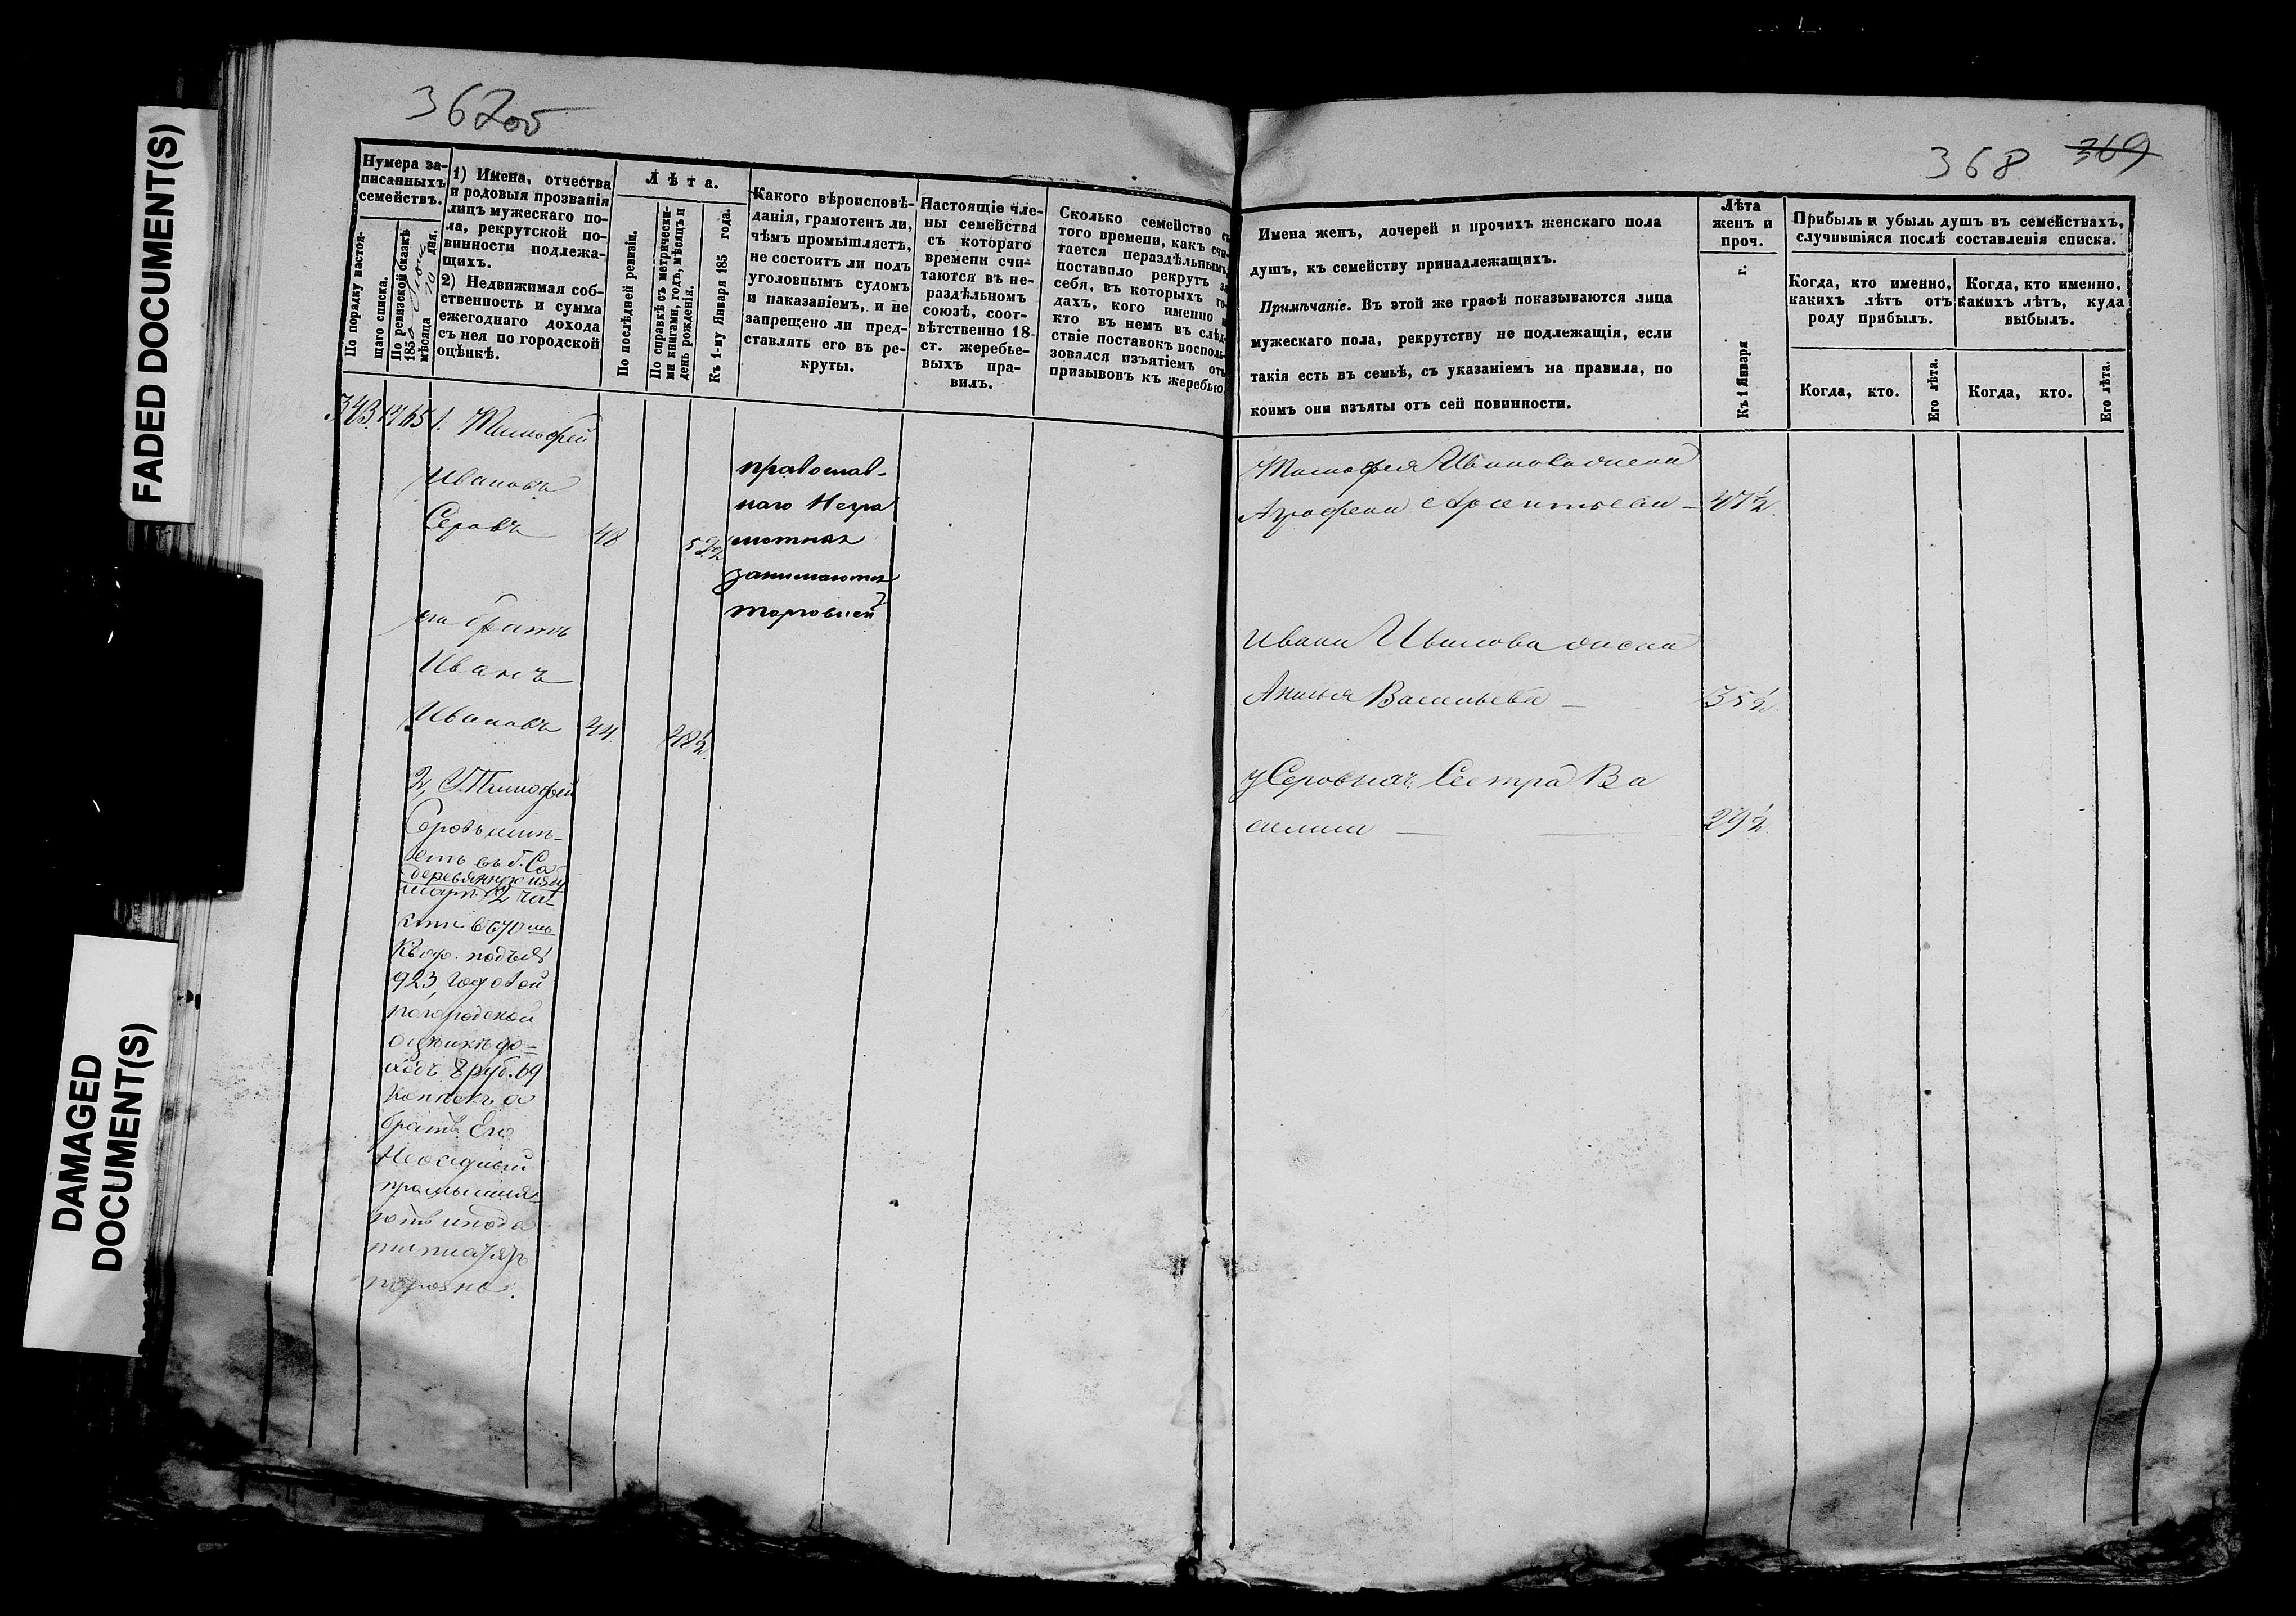 FADED DOCUMENT(S)
DAMAGED
DOCUMENT(S)
367об
Нумера за-
писанныхъ
семействъ.
По порядку настоя-
щаго списка.
По ревизской сказкѣ
185 мѣсяца 10 дня.
1) Имена, отчества
и родовыя прозванія
лицъ мужескаго по-
ла, рекрутской по-
винности подлежа-
щихъ.
2) Недвижимая соб-
ственность и сумма
ежегоднаго дохода
съ нея по городской
оцѣнкѣ.
Лѣта.
По послѣдней ревизіи.
По справкѣ съ метрически-
ми книгами, годъ, мѣсяцъ и
день рожденія.
Къ 1-му Января 185 года.
Какого вѣроисповѣ-
данія, грамотенъ ли,
чѣмъ промышляетъ,
не состоитъ ли подъ
уголовнымъ судомъ
и наказаніемъ, и не
запрещено ли пред-
ставлять его въ ре-
круты.
Настоящіе чле-
ны семейства
съ котораго
времени счи-
таются въ не-
раздѣльномъ
союзѣ, соот-
вѣтственно 18-
ст. жеребье-
выхъ пра-
вилъ.
Сколько семейство съ
того времени, какъ счи-
тается нераздѣльнымъ,
поставило рекрутъ за
себя, въ которыхъ го-
дахъ, кого именно и
кто въ немъ въ слѣд-
ствіе поставокъ восполь-
зовался изъятіемъ отъ
призывовъ къ жеребью.
343. 1765 1. Тимофей
Ивановъ
Серовъ 48 52½
православ-
наго Негра
мотная
занимаются
торговлей
его братъ
Иванъ
Ивановъ 44. 48½.
2, У Тимофея
Серова имѣ-
етъ въ г. Са
деревянную избу
марѣ 2 ча
сти въ 70 мъ
подъ №
923 годовой
по городской
оцѣнкѣ до-
ходъ 8 руб. 69
копѣекъ а
братъ Его
промышля-
368 369
Имена женъ, дочерей и прочихъ женскаго пола
душъ, къ семейству принадлежащихъ.
Примѣчаніе. Въ этой же графѣ показываются лица
мужескаго пола, рекрутству не подлежащія, если
такія есть въ семьѣ, съ указаніемъ на правила, по
коимъ они изъяты отъ сей повинности.
Лѣта
женъ и
проч.
Къ 1 Января г.
Прибыль и убыль душъ въ семействахъ,
случившіяся послѣ составленія списка.
Когда, кто именно,
какихъ лѣтъ отъ
роду прибылъ.
Когда, кто именно,
какихъ лѣтъ, куда
выбылъ.
Когда, кто.
Его лѣта.
Когда, кто.
Его лѣта.
Тимофея Иванова жена
Аграфена Арсентьева - 47½.
Ивана Иванова жена
Анисья Васильева - 35½.
у Серовыхъ Сестра Ва
силиса 29½.